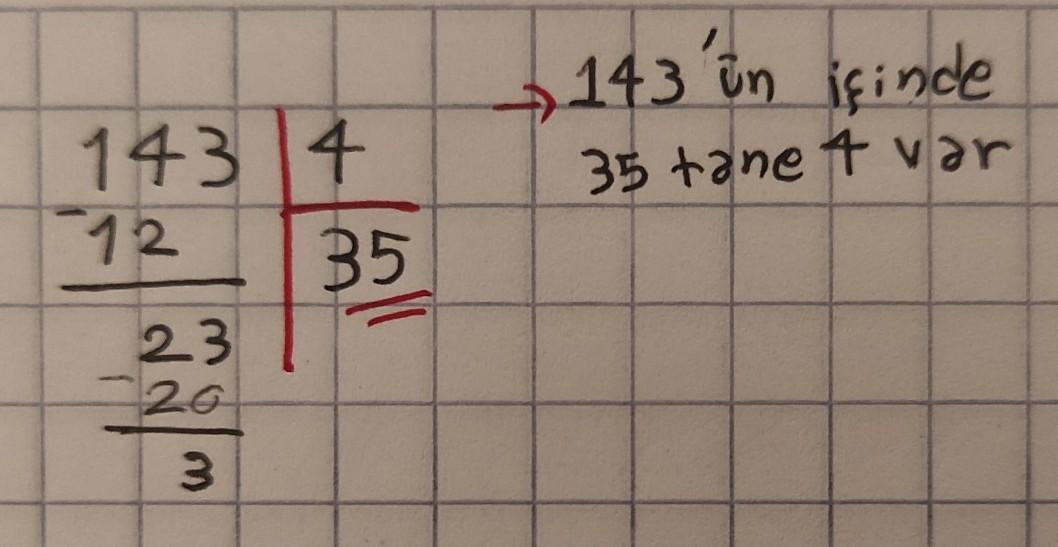 143 4
-12 35
23
-20
3
→ 143'ün içinde
35 tane 4 var